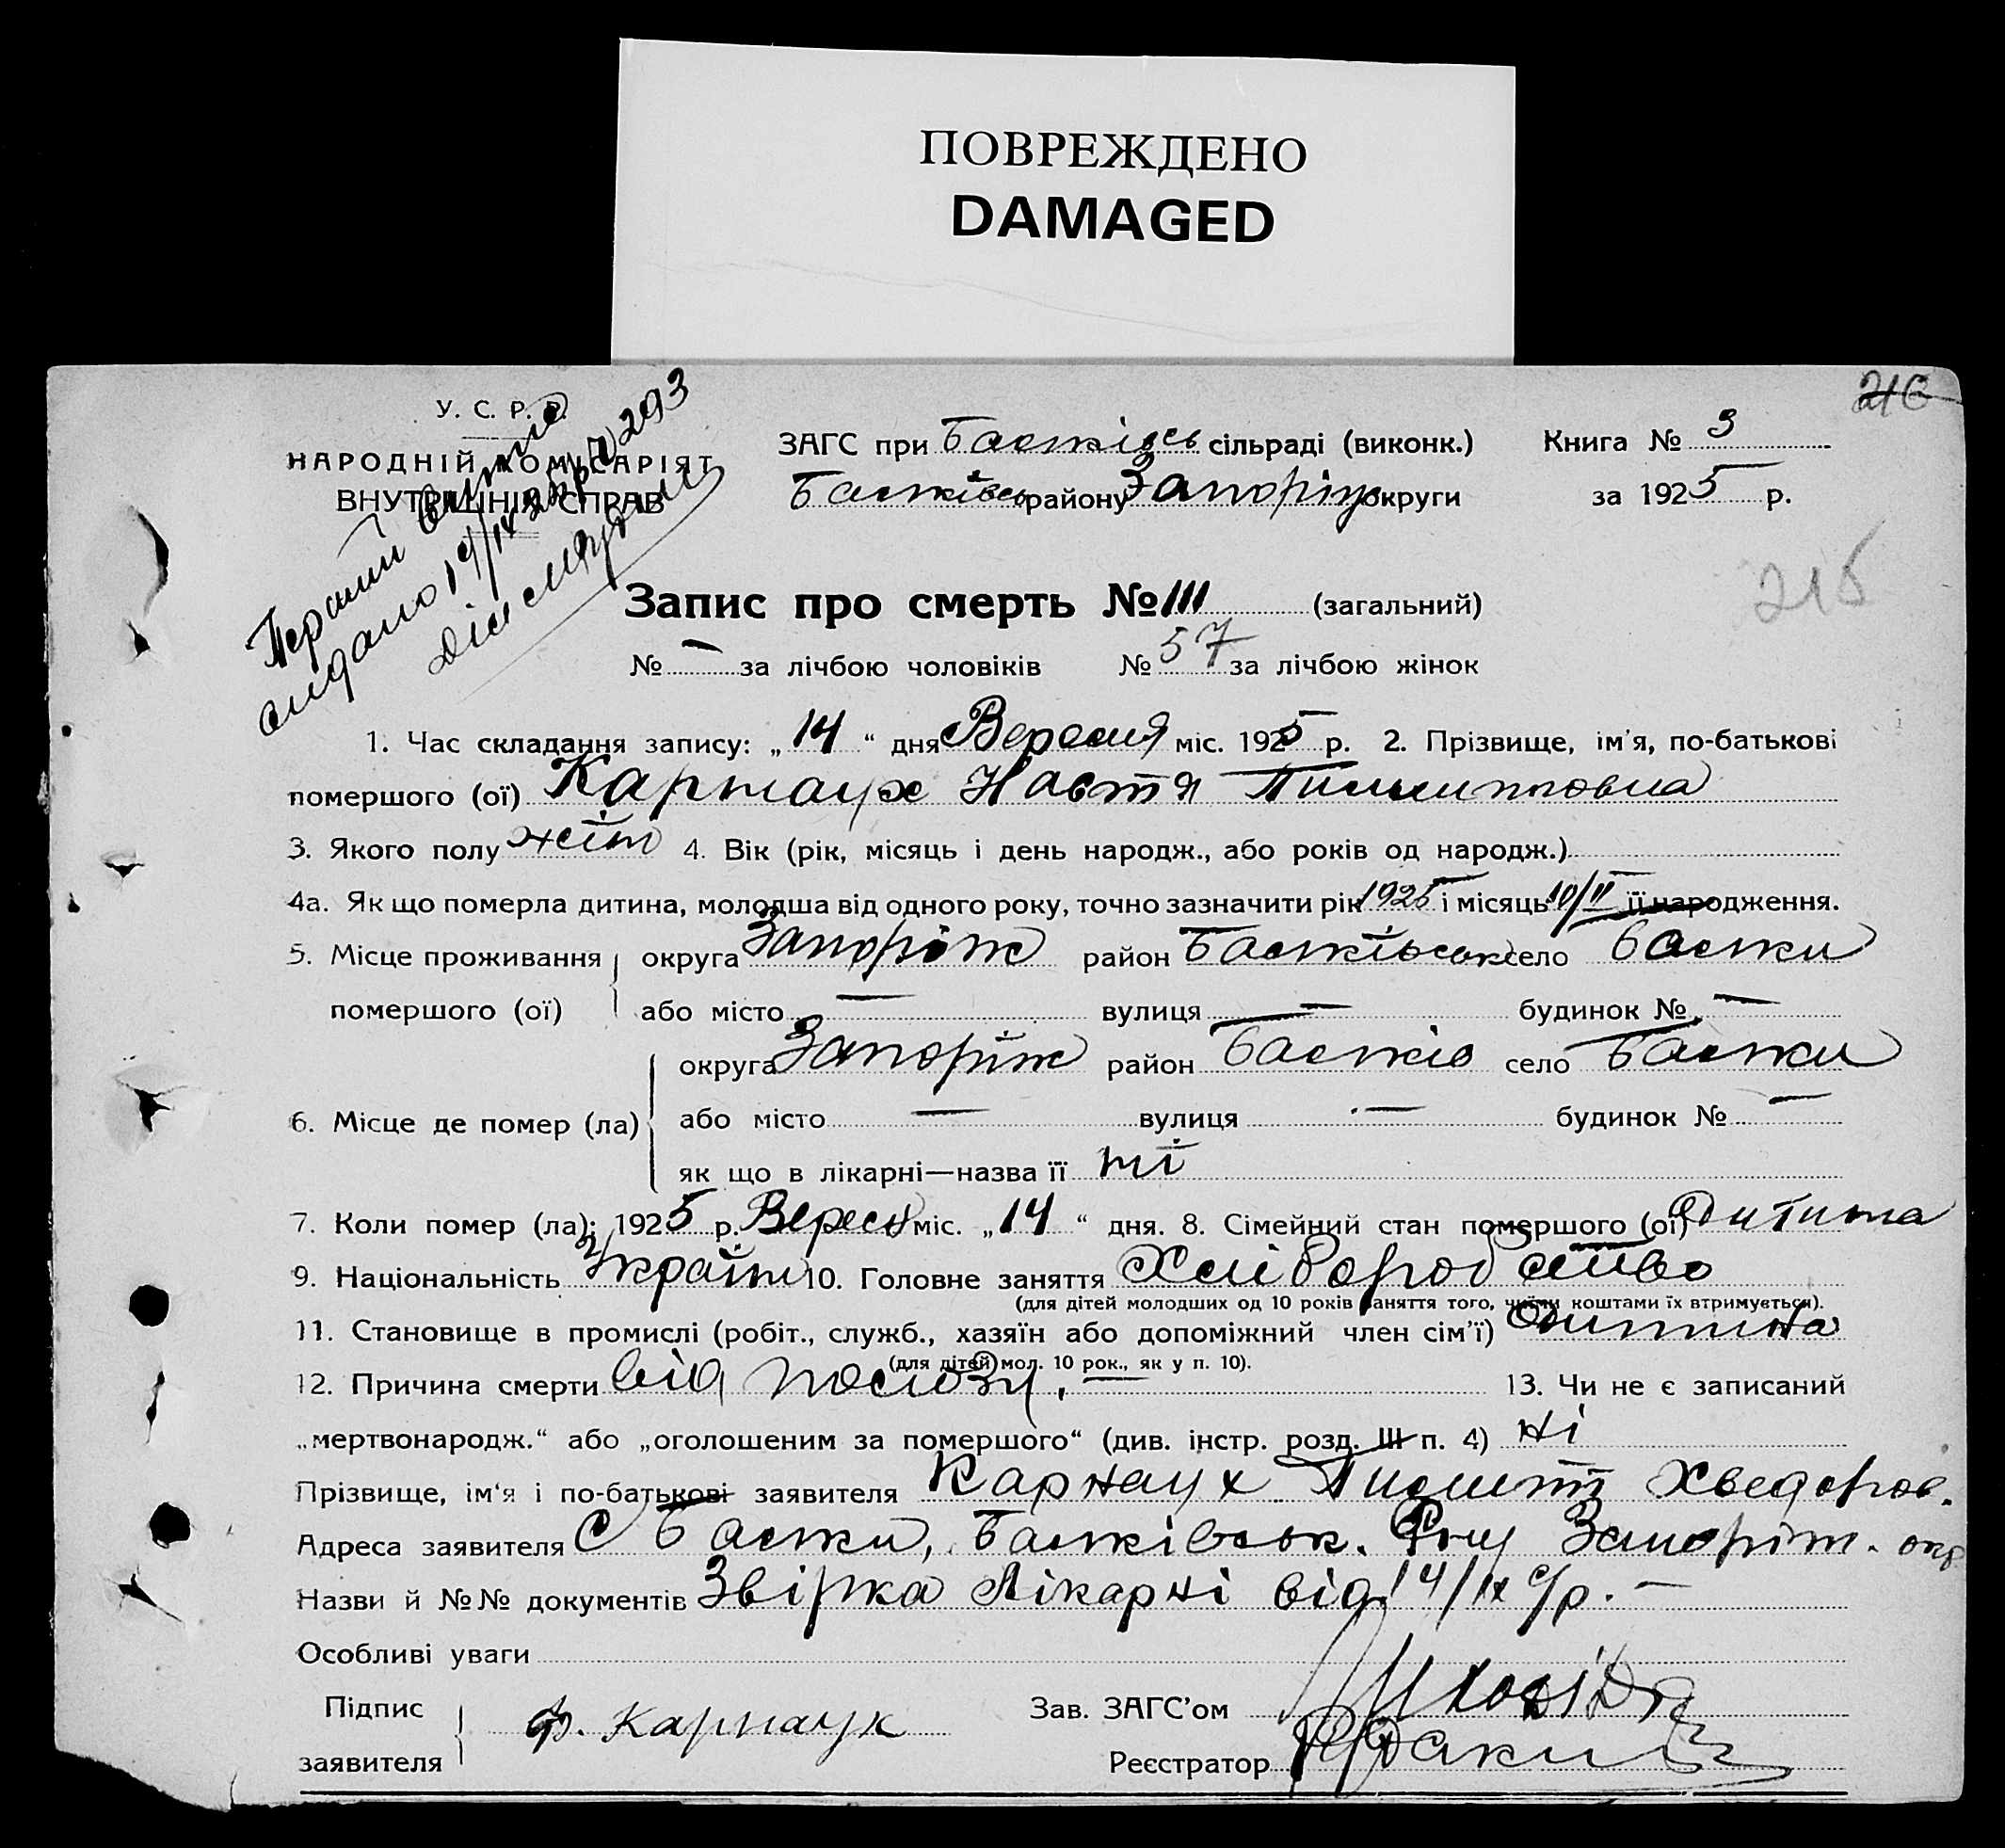 ПОВРЕЖДЕНО
DAMAGED
216
У. С. Р. Р.
НАРОДНІЙ КОМІСАРІЯТ
ВНУТРІШНІХ СПРАВ
Перший
видано 14/IX 293
ЗАГС при сільраді (виконк.) Книга № 3
району Запоріж округи за 1925 р.
215
Запис про смерть № 111 (загальний)
№ — за лічбою чоловіків № 57 за лічбою жінок
1. Час складання запису: „14“ дня Вересня міс. 1925 р. 2. Прізвище, ім'я, по-батькові
помершого (ої) Карнаух Настя Пилипповна
3. Якого полу жін 4. Вік (рік, місяць і день народж., або років од народж.)
4а. Як що померла дитина, молодша від одного року, точно зазначити рік 1925 і місяць 10/II її народження.
5. Місце проживання округа Запоріж район село
помершого (ої) або місто — вулиця — будинок № —
округа Запоріж район село
6. Місце де помер (ла) або місто — вулиця — будинок № —
як що в лікарні—назва її ні
7. Коли помер (ла): 1925 р. Вересн міс. „14“ дня. 8. Сімейний стан помершого (ої) Дитина
9. Національність Україн 10. Головне заняття Хліборобство
(для дітей молодших од 10 років заняття того, чиїми коштами їх втримується).
11. Становище в промислі (робіт., служб., хазяїн або допоміжний член сім'ї) Дитина
(для дітей мол. 10 рок., як у п. 10).
12. Причина смерти від поносу. — 13. Чи не є записаний
„мертвонародж.“ або „оголошеним за помершого“ (див. інстр. розд. III п. 4) ні
Прізвище, ім'я і по-батькові заявителя Карнаух Пилипп Хведоров.
Адреса заявителя С Запоріж. окр
Назви й №№ документів Звірка Лікарні від 14/IX с/р. —
Особливі уваги
Підпис Зав. ЗАГС'ом
заявителя Ф. Карнаух
Реєстратор